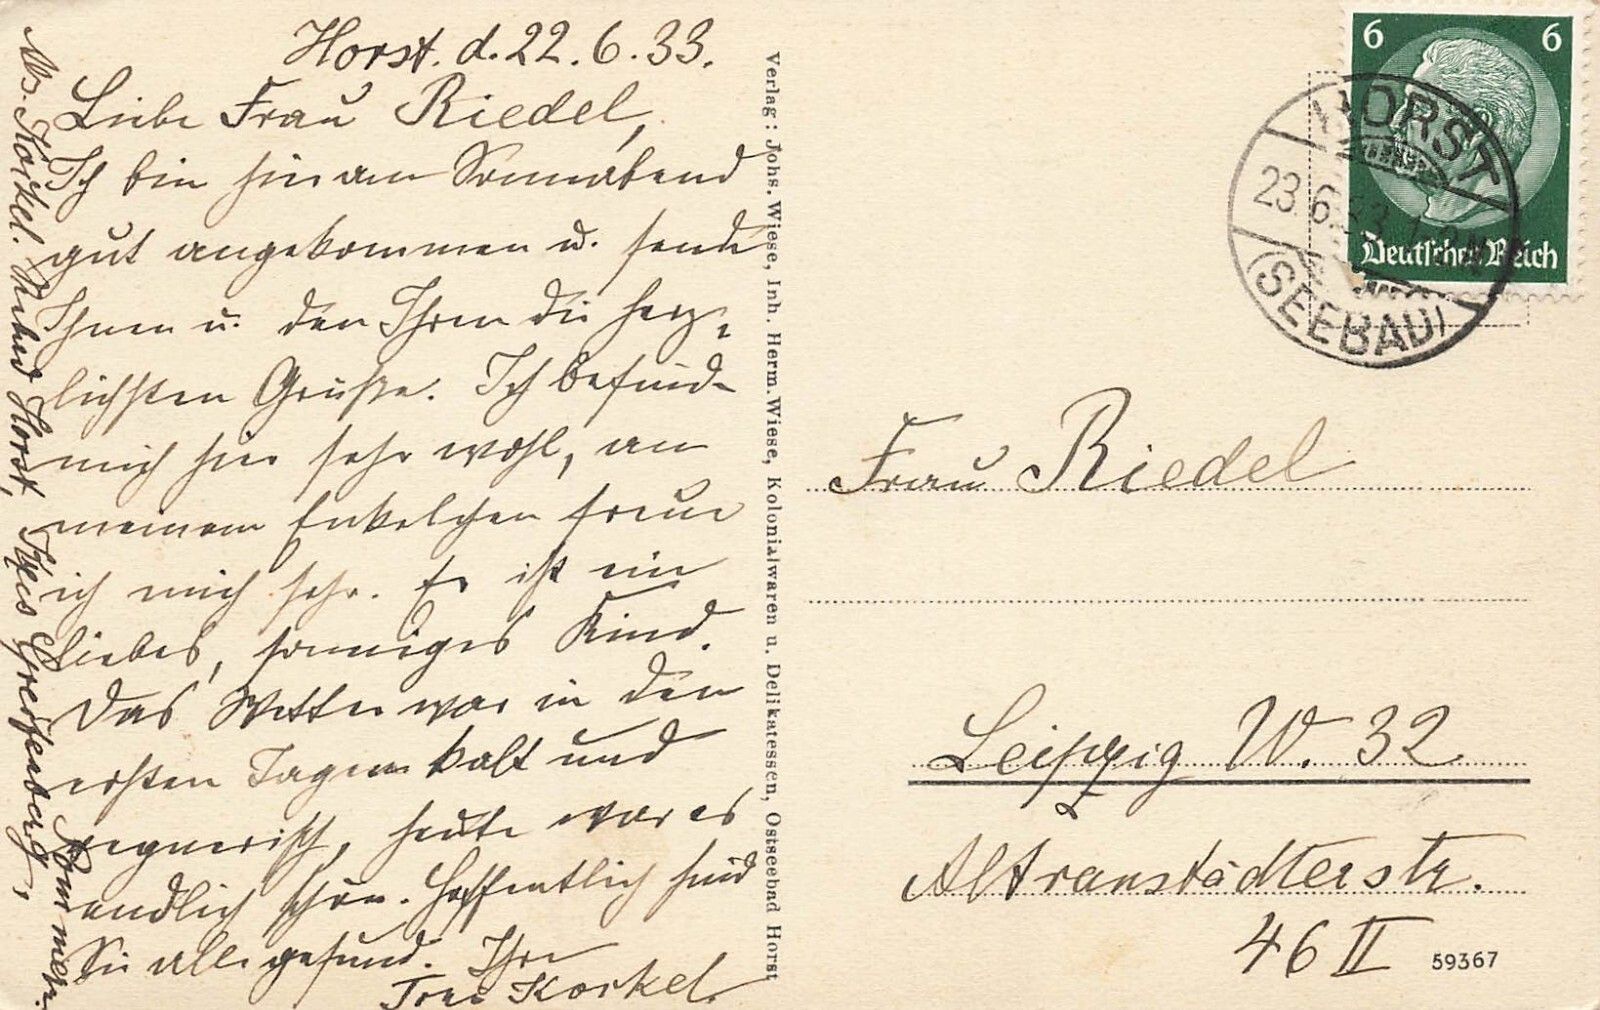 Horst. d. 22. 6. 33.
Liebe Frau Riedel,
Ich bin hier am Sonnabend
gut angekommen u. sende
Ihnen u. den Ihren die herz-
lichsten Grüße. Ich befinde
mich hier sehr wohl, an
meinem Enkelchen freue
ich mich sehr. Es ist ein
liebes, sonniges Kind.
Das Wetter war in den
ersten Tagen kalt und
regnerisch, heute war es
endlich schön. Hoffentlich sind
Sie alle gesund. Ihre
Frau Korkel.
Korkel. Horst,
Kreis Greifenberg,
Pommern.
Verlag: Johs. Wiese, Inh. Herm. Wiese, Kolonialwaren u. Delikatessen, Ostseebad Horst
6 6
Deutsches Reich
HORST
23.6.33
(SEEBAD)
Frau Riedel
Leipzig W. 32
Altranstädterstr.
46 II
59367